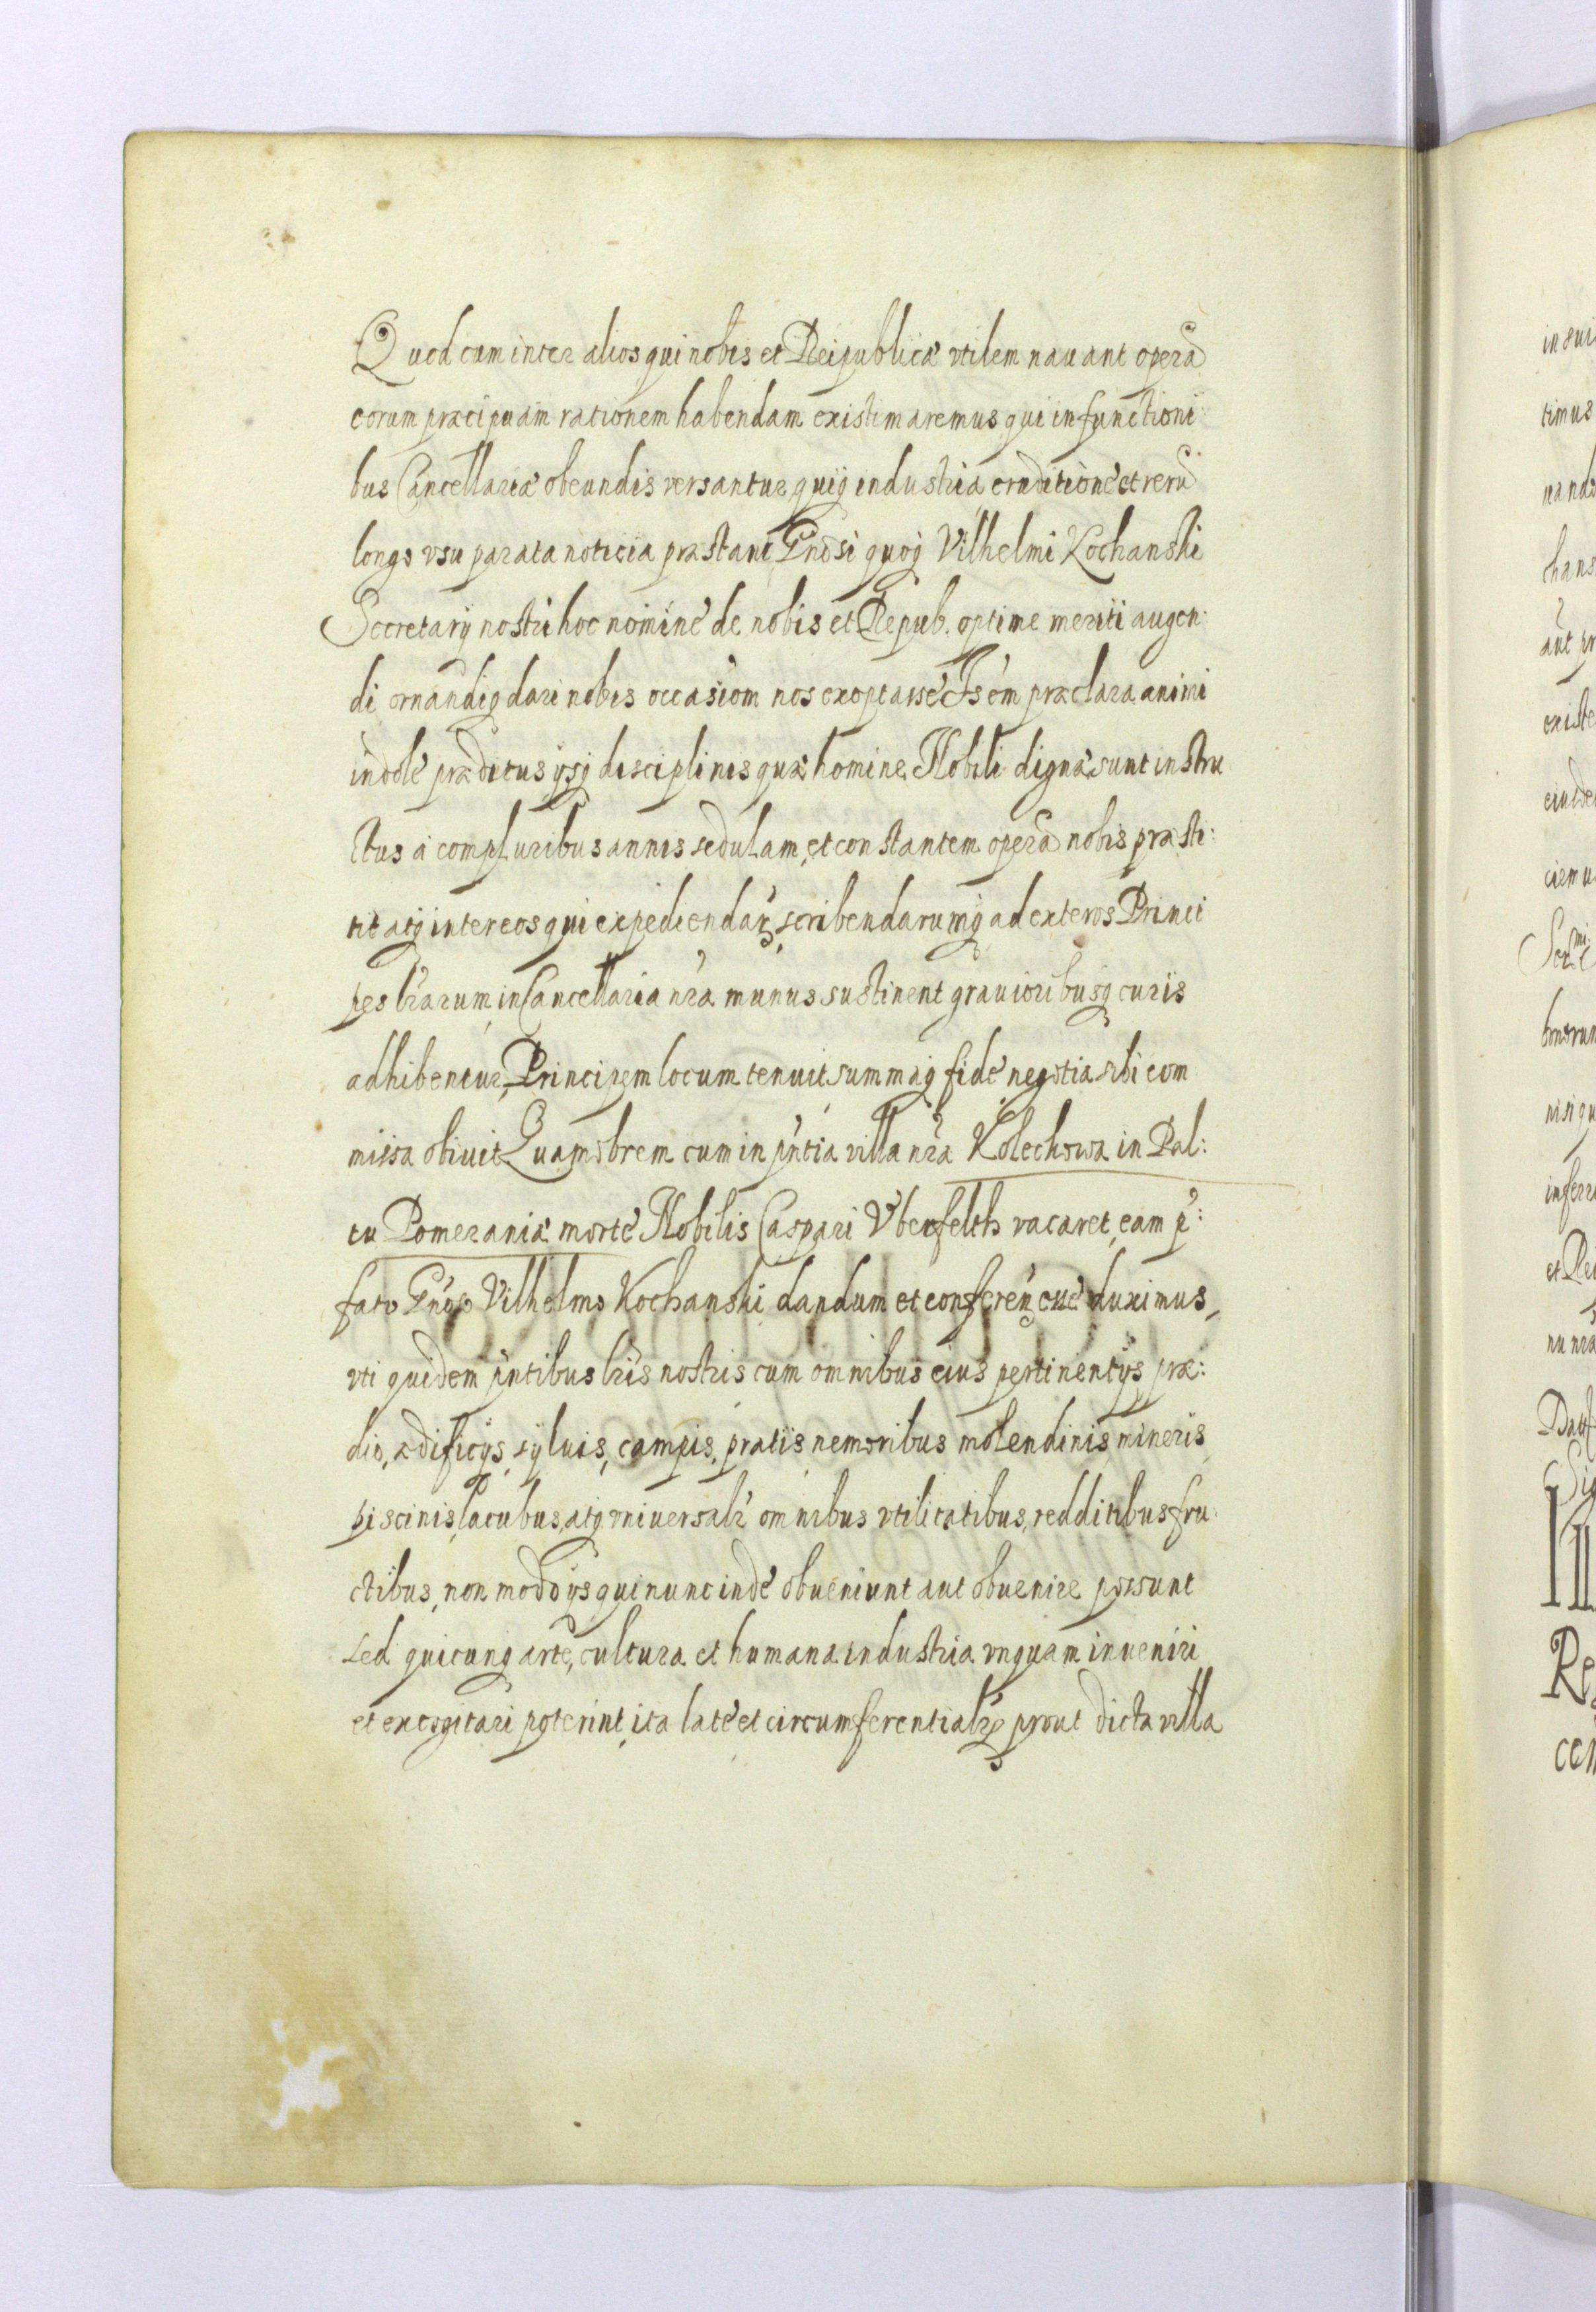 Quod cum inter alios qui nobis et Reipublicæ vtilem nauant operã
eorum præcipuam rationem habendam existimaremus qui in functioni
bus Cancellariæ obeundis versantur quiq industria eruditione et rerũ
longo vsu parata noticia præstant Gnosi quoq Vilhelmi Kochanski
Secretarij nostri hoc nomine de nobis et Repub. optime meriti augen:
di ornandiq dari nobis occasiom nos exoptasse Is em præclara animi
indole præditus ijsq disciplinis quæ homine Nobili dignæ sunt instru
ctus a compluribus annis sedulam, et constantem operã nobis præsti:
tit atq inter eos qui expediendaꝝ, scribendarumq ad exteros Princi
pes lrarum, in Cancellaria nra munus sustinent grauioribusq curis
adhibentur, Principem locum tenuit, summaq fide negotia sibi com
missa obiuit Quamobrem cum in pntia villa nra Kolechowa in Pal:
tu Pomeraniæ morte Nobilis Caspari Vbenfelth vacaret, eam p:
fato Gnoso Vilhelmo Kochanski dandum et conferen duximus,
vti quidem pntibus lris nostris cum omnibus eius pertinentijs præ:
dio, ædificijs, syluis, campis, pratis nemoribus molendinis mineris
piscinis, lacubus, atq vniversalr omnibus vtilitatibus, redditibus fru
ctibus, non modo ijs qui nunc inde obueniunt aut obuenire possunt
sed quicunq arte, cultura et humana industria vnquam inueniri
et excogitari poterint, ita late et circumferentialr prout dicta villa